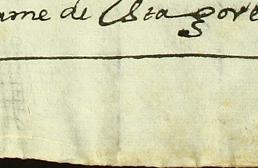 ame de Stagore